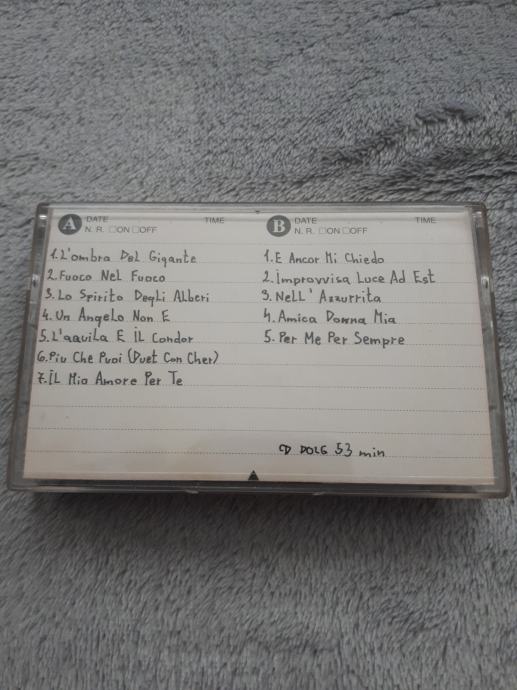 A DATE TIME
N. R. □ON □OFF
1. L'ombra Del Gigante
2. Fuoco Nel Fuoco
3. Lo Spirito Degli Alberi
4. Un Angelo Non E
5. L'aquila E iL Condor
6. Piu Che Puoi (Duet Con Cher)
7. iL Mio Amore Per Te
B DATE TIME
N. R. □ON □OFF
1. E Ancor Mi Chiedo
2. improvvisa Luce Ad Est
3. NeLL' Azzurrita
4. Amica Donna Mia
5. Per Me Per Sempre
CD DOLG 53 min